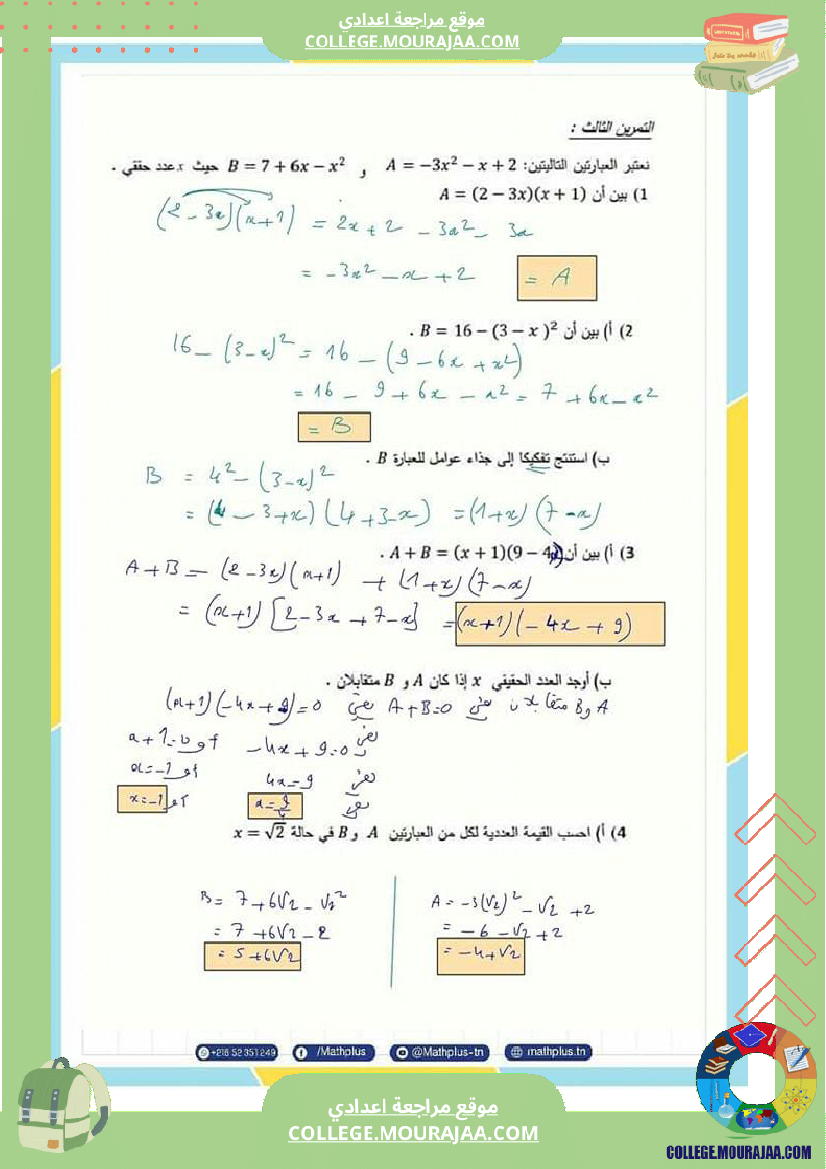 موقع مراجعة اعدادي
COLLEGE.MOURAJAA.COM
التمرين الثالث :
نعتبر العبارتين التاليتين: A = −3x² − x + 2 و B = 7 + 6x − x² حيث x عدد حقيقي .
1) بين أن A = (2 − 3x)(x + 1)
(2 - 3x)(x+1) = 2x + 2 - 3x² - 3x
= -3x² - x + 2 = A
2) أ) بين أن B = 16 − (3 − x )² .
16 - (3-x)² = 16 - (9 - 6x + x²)
= 16 - 9 + 6x - x² = 7 + 6x - x²
= B
ب) استنتج تفكيكا إلى جذاء عوامل للعبارة B .
B = 4² - (3-x)²
= (4 - 3+x)(4+3-x) = (1+x)(7-x)
3) أ) بين أن A + B = (x + 1)(9 − 4x) .
A+B = (2-3x)(x+1) + (1+x)(7-x)
= (x+1)[2-3x+7-x] = (x+1)(-4x+9)
ب) أوجد العدد الحقيقي x إذا كان A و B متقابلان .
A و B متقابلان يعني A+B=0 يعني (x+1)(-4x+9)=0
يعني -4x+9=0 أو x+1=0
يعني 4x=9 أو x=-1
يعني x=9/4 أو x=-1
4) أ) احسب القيمة العددية لكل من العبارتين A و B في حالة x = √2
A = -3(√2)² - √2 + 2
= -6 - √2 + 2
= -4+√2
B = 7+6√2 - √2²
= 7+6√2 - 2
= 5+6√2
+216 52 351 249
/Mathplus
@Mathplus-tn
mathplus.tn
موقع مراجعة اعدادي
COLLEGE.MOURAJAA.COM
COLLEGE.MOURAJAA.COM